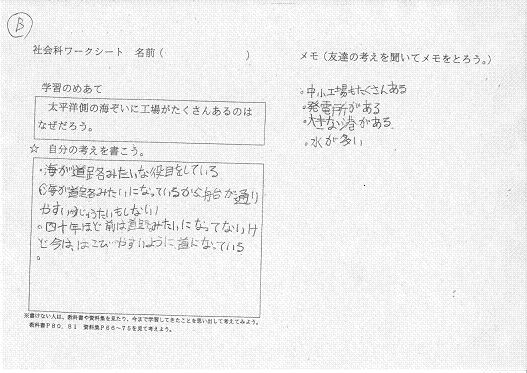 B
社会科ワークシート 名前（ ）
学習のめあて
太平洋側の海ぞいに工場がたくさんあるのは
なぜだろう。
☆ 自分の考えを書こう。
・海が道路みたいな役目をしている
(海が道路みたいになっているから船が通り
やすい じゅうたいもしない)
・四十年ほど前は道路みたいになってないけ
ど今は、はこびやすいように道になっている
。
※書けない人は、教科書や資料集を見たり、今まで学習してきたことを思い出して考えてみよう。
教科書P80、81 資料集P66～75を見て考えよう。
メモ（友達の考えを聞いてメモをとろう。）
・中小工場もたくさんある
・発電所がある
・大きな港がある
・水が多い